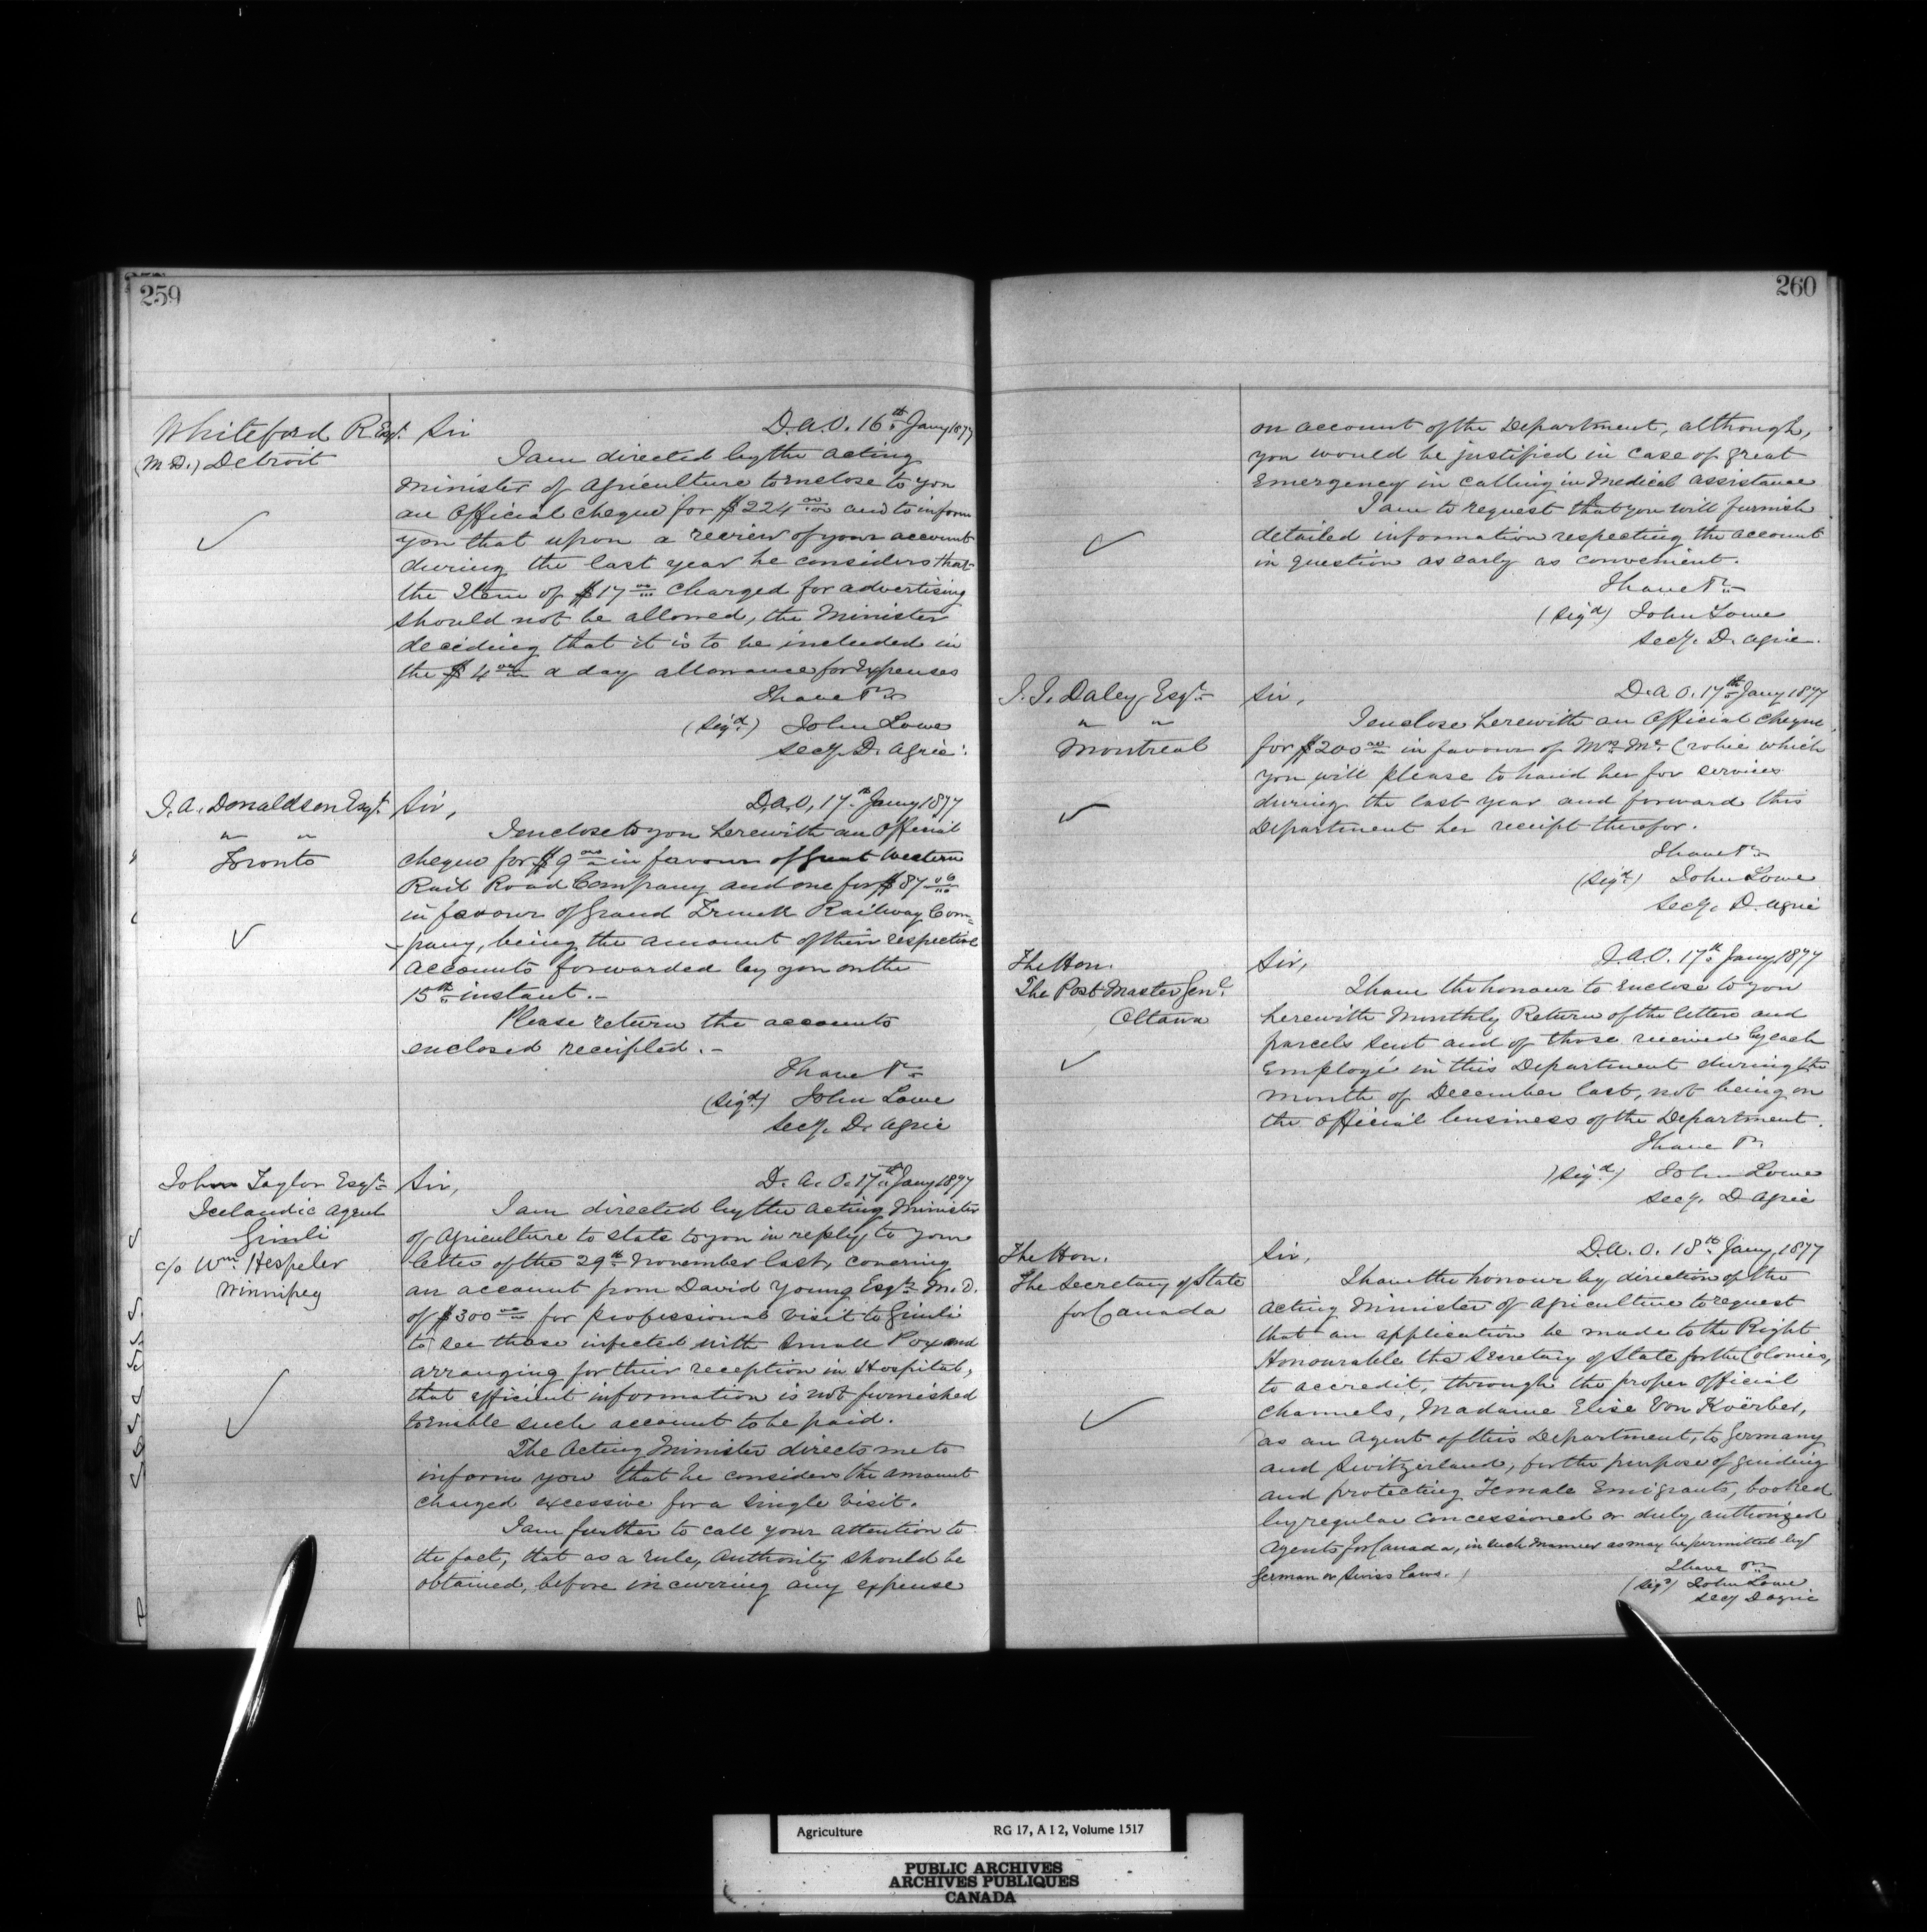 259
Whiteford R Esqr.
(M.D.) Detroit
Sir D.A.O. 16th Jany 1877
I am directed by the acting
Minister of Agriculture to enclose to you
an Official Cheque for $224 00/100 and to inform
you that upon a review of your account
during the last year he considers that
the Item of $17 00/100 charged for advertising
should not be allowed, the Minister
deciding that it is to be included in
the $4 00/100 a day allowance for Expenses
I have &c
(Sigd.) John Lowe
Secy. D. Agric.
J.A. Donaldson Esqr.
" "
Toronto
Sir, D.A.O. 17th Jany 1877
I enclose to you herewith an Official
cheque for $9 00/100 in favour of Great Western
Rail Road Company and one for $87 06/100
in favour of Grand Trunk Railway Com=
pany, being the amount of their respective
accounts forwarded by you on the
15th instant.–
Please return the accounts
enclosed receipted.–
I have &c
(Sigd.) John Lowe
Secy. D. Agric
John Taylor Esqr
Icelandic Agent
Gimli
c/o Wm. Hespeler
Winnipeg
Sir, D.A.O. 17th Jany 1877
I am directed by the Acting Minister
of Agriculture to state to you in reply to your
letter of the 29th November last, covering
an account from David Young Esqr M.D.
of $300 00/100 for professional visit to Gimli
to see those infected with Small Pox and
arranging for their reception in Hospital,
that efficient information is not furnished
to enable such account to be paid.
The Acting Minister directs me to
inform you that he considers the amount
charged excessive for a single visit.
I am further to call your attention to
the fact, that as a rule, Authority should be
obtained, before incurring any expense
260
on account of the Department, although,
you would be justified in case of great
Emergency in calling in Medical assistance
I am to request that you will furnish
detailed information respecting the account
in question as early as convenient.
I have &c
(Sigd) John Lowe
Secy. D. Agric.
J.J. Daley Esqr
" "
Montreal
Sir, D.A.O. 17th Jany 1877
I enclose herewith an Official Cheque
for $200 00/100 in favour of Mrs. Mc.Crobie which
you will please to hand her for services
during the last year and forward this
Department her receipt therefor.
I have &c
(Sigd.) John Lowe
Secy. D. Agric
The Hon.
The Post Master Genl.
Ottawa
Sir, D.A.O. 17th Jany 1877
I have the honour to enclose to you
herewith Monthly Return of the letters and
parcels sent and of those received by each
Employé in this Department during the
month of December last, not being on
the Official business of the Department.
I have &c
(Sigd) John Lowe
Secy. D Agric
The Hon.
The Secretary of State
for Canada
Sir, D.A.O. 18th Jany 1877
I have the honour by direction of the
Acting Minister of Agriculture to request
that an application be made to the Right
Honourable the Secretary of State for the Colonies,
to accredit, through the proper official
channels, Madame Elise Von Koërber,
as an Agent of this Department, to Germany
and Switzerland, for the purpose of guiding
and protecting Female Emigrants, booked
by regular concessioned or duly authorized
Agents for Canada, in such manner as may be permitted by
German or Swiss laws.
I have &c
(Sigd) John Lowe
Secy D Agric
Agriculture RG 17, A I 2, Volume 1517
PUBLIC ARCHIVES
ARCHIVES PUBLIQUES
CANADA